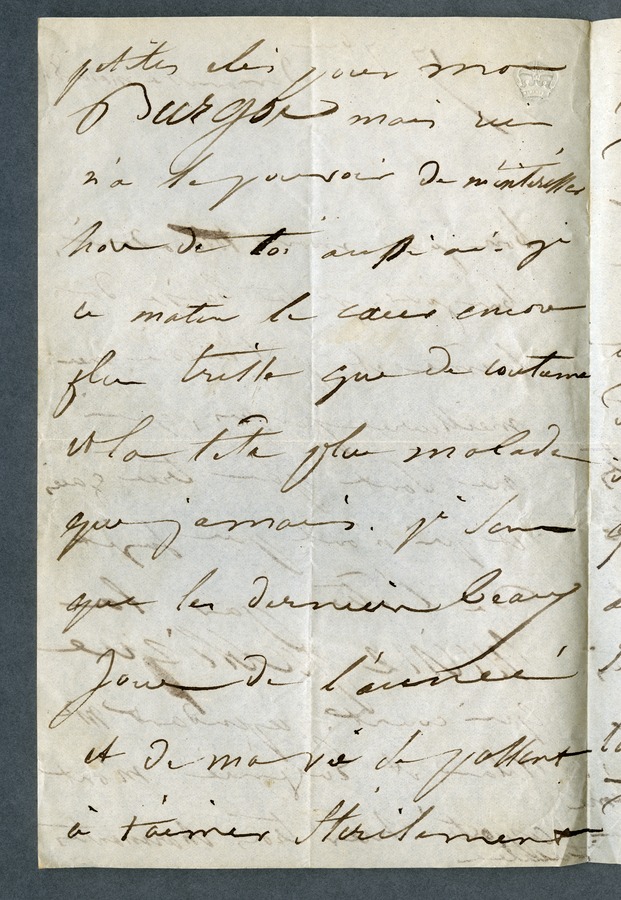 petites clés pour mon
Burgos mais rien
n'a le pouvoir de m'intéresser
hors de toi aussi ai-je
ce matin le coeur encore
plus triste que de coutume
et la tête plus malade
que jamais. je sens
que les derniers beaux
jours de l'année
et de ma vie se passent
à t'aimer stérilement